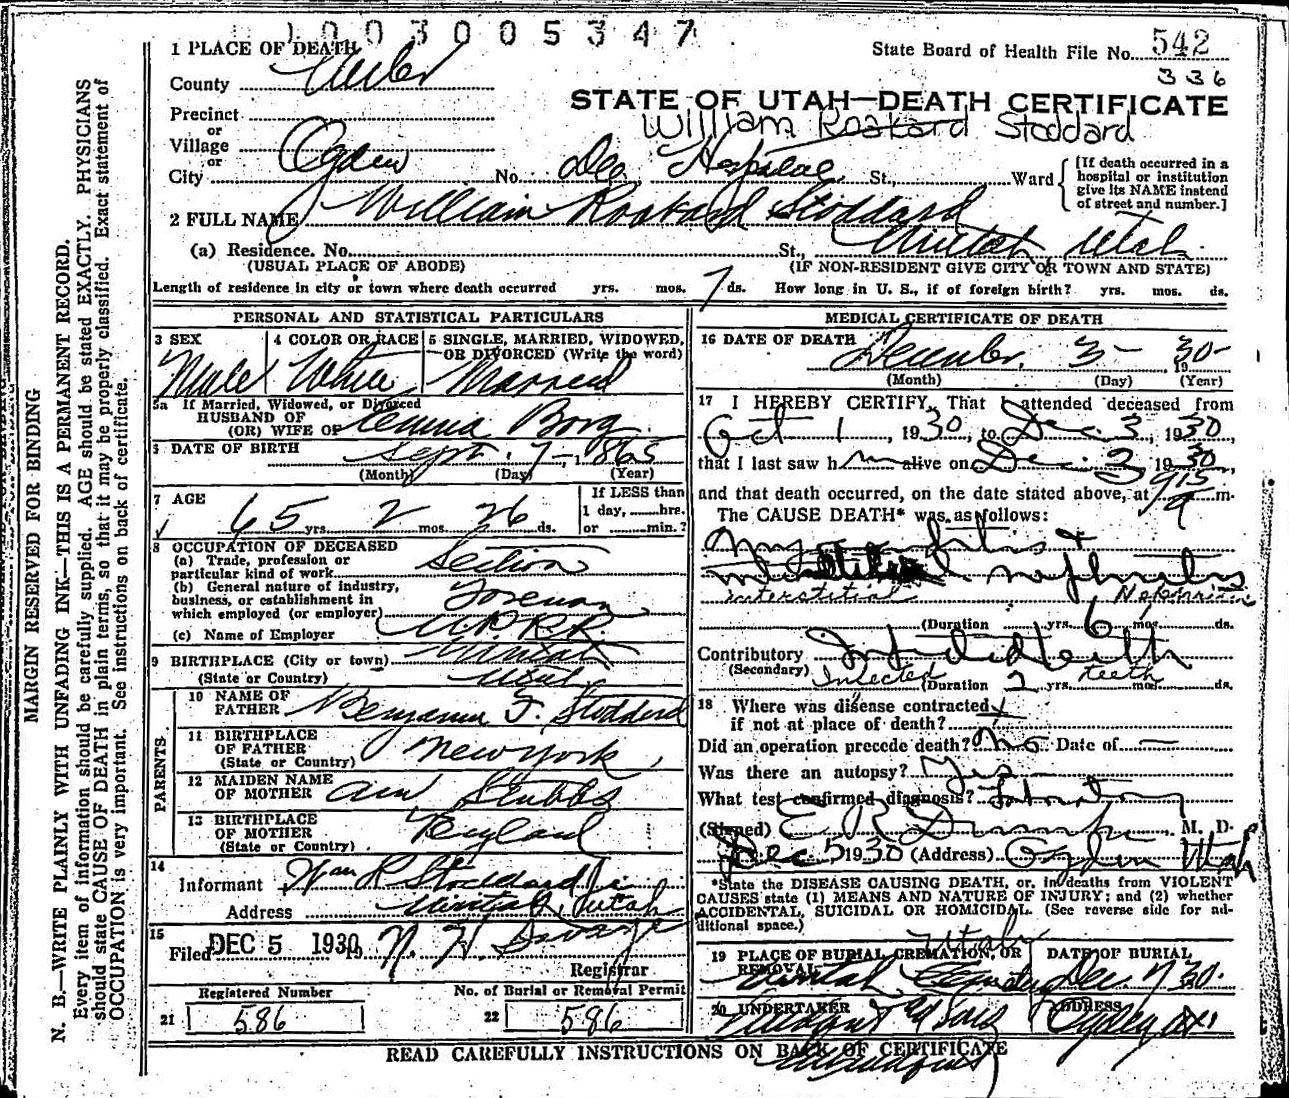 1003005347
1 PLACE OF DEATH
State Board of Health File No. 542
336
County Weber
STATE OF UTAH—DEATH CERTIFICATE
Precinct
William Roakard Stoddard
or
Village
or
City Ogden No. Dee Hospital St., Ward
[If death occurred in a hospital or institution give its NAME instead of street and number.]
2 FULL NAME William Roakard Stoddard
(a) Residence. No. St., Uintah Utah
(USUAL PLACE OF ABODE) (IF NON-RESIDENT GIVE CITY OR TOWN AND STATE)
Length of residence in city or town where death occurred yrs. mos. 7 ds. How long in U. S., if of foreign birth? yrs. mos. ds.
PERSONAL AND STATISTICAL PARTICULARS
3 SEX Male
4 COLOR OR RACE White
5 SINGLE, MARRIED, WIDOWED, OR DIVORCED (Write the word) Married
5a If Married, Widowed, or Divorced
HUSBAND OF
(OR) WIFE OF Emma Borg
6 DATE OF BIRTH Sept. 7 - 1865
(Month) (Day) (Year)
7 AGE 65 yrs. 2 mos. 26 ds.
If LESS than
1 day, hrs.
or min.?
8 OCCUPATION OF DECEASED
(a) Trade, profession or
particular kind of work Section
(b) General nature of industry,
business, or establishment in
which employed (or employer) Foreman
(c) Name of Employer U.P.R.R.
9 BIRTHPLACE (City or town) Uintah
(State or Country) Utah
PARENTS
10 NAME OF FATHER Benjamin F. Stoddard
11 BIRTHPLACE OF FATHER
(State or Country) New York
12 MAIDEN NAME OF MOTHER Ann Stubbs
13 BIRTHPLACE OF MOTHER
(State or Country) England
14
Informant Wm R Stoddard Jr
Address Uintah, Utah
15
Filed DEC 5 1930 19
Registrar
Registered Number
21 586
No. of Burial or Removal Permit
22 586
MEDICAL CERTIFICATE OF DEATH
16 DATE OF DEATH
December 3 - 1930 -
(Month) (Day) (Year)
17 I HEREBY CERTIFY, That I attended deceased from
Oct 1, 1930, to Dec. 3, 1930,
that I last saw him alive on Dec. 3, 1930,
and that death occurred, on the date stated above, at 915 a m.
The CAUSE DEATH* was as follows:
Myocarditis +
nephritis
Interstitial Nephritis
(Duration yrs. 6 mos. ds.
Contributory Infected teeth
(Secondary)
Infected teeth
(Duration 2 yrs. mos. ds.
18 Where was disease contracted
if not at place of death?
Did an operation precede death? No Date of —
Was there an autopsy? Yes
What test confirmed diagnosis? Laboratory
(Signed) E R Dumke M. D.
Dec 5 1930 (Address) Ogden Utah
*State the DISEASE CAUSING DEATH, or, in deaths from VIOLENT
CAUSES state (1) MEANS AND NATURE OF INJURY; and (2) whether
ACCIDENTAL, SUICIDAL OR HOMICIDAL. (See reverse side for ad-
ditional space.)
19 PLACE OF BURIAL, CREMATION, OR REMOVAL
Utah
Uintah Cemetery
DATE OF BURIAL
Dec. 7 30.
20 UNDERTAKER
ADDRESS
READ CAREFULLY INSTRUCTIONS ON BACK OF CERTIFICATE
MARGIN RESERVED FOR BINDING
N. B.—WRITE PLAINLY WITH UNFADING INK—THIS IS A PERMANENT RECORD.
Every item of information should be carefully supplied. AGE should be stated EXACTLY. PHYSICIANS
should state CAUSE OF DEATH in plain terms, so that it may be properly classified. Exact statement of
OCCUPATION is very important. See instructions on back of certificate.